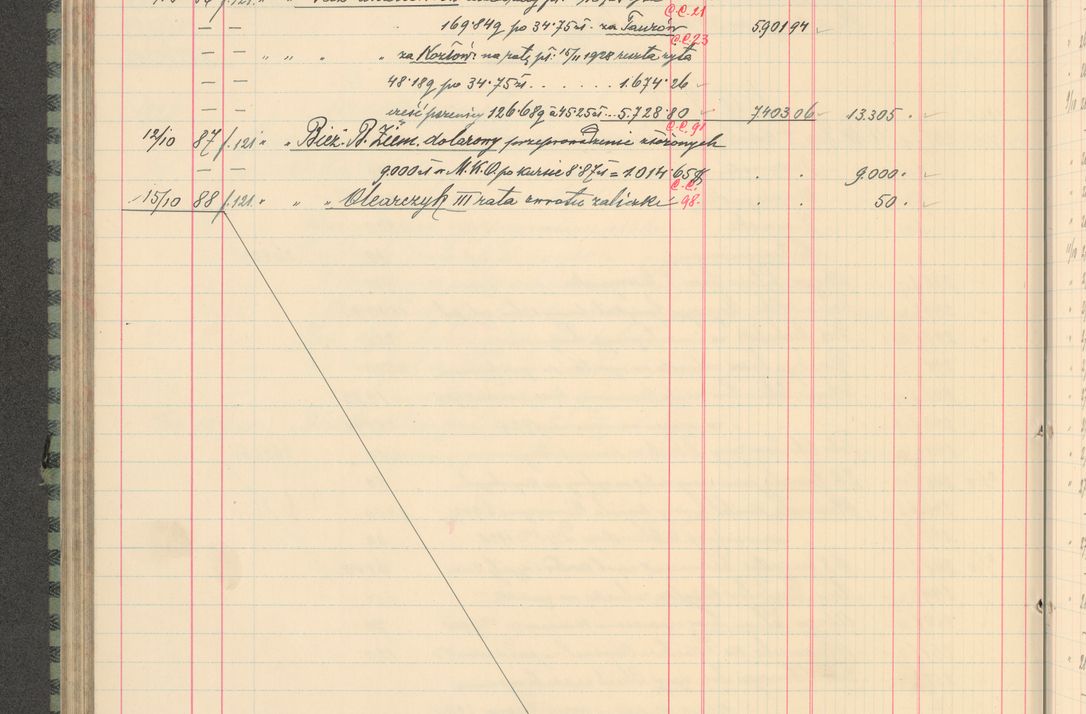 C.C. 21
— — 169·84q po 34·75zł. za Taurów 5901 94
C.C. 23
" " " " za Kozłów na ratę pł. 15/II 1928 reszta żyta
— — 48·18q po 34·75zł. . . . . . . 1.674·26
— — część pszenicy 126·68q à 45·25zł... 5.728·80 7403 06 13.305 .
C.C. 91
12/10 87 f. 121 " " Bież. B. Ziem. dolarowy przeprowadzenie złożonych
— — 9.000 zł w M.K.O. po kursie 8·87zł = 1.014·65$ . . 9.000 .
C.C.
15/10 88 f. 121. " " " Olearczyk III rata zwrotu zaliczki 98. . . 50 .